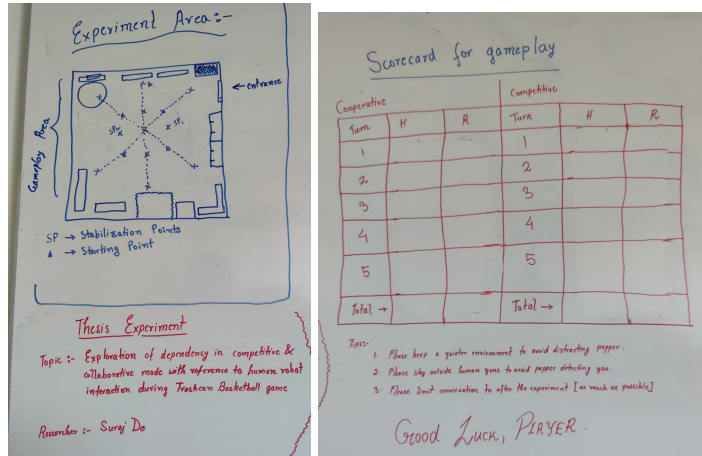 Experiment Area:-
← entrance
Gameplay Area
SP
SP₁
SP → Stabilization Points
▲ → Starting Point
Thesis Experiment
Topic :- Exploration of dependency in competitive &
collaborative mode with reference to human robot
interaction during Trashcan Basketball game
Researcher :- Suraj De
Scorecard for gameplay
Cooperative
Competitive
Turn H R Turn H R
1 1
2 2
3 3
4 4
5 5
Total → Total →
Tips:-
1. Please keep a quieter environment to avoid distracting pepper.
2. Please stay outside human zone to avoid pepper detecting you.
3. Please limit conversation to after the experiment [as much as possible]
Good Luck, PLAYER.